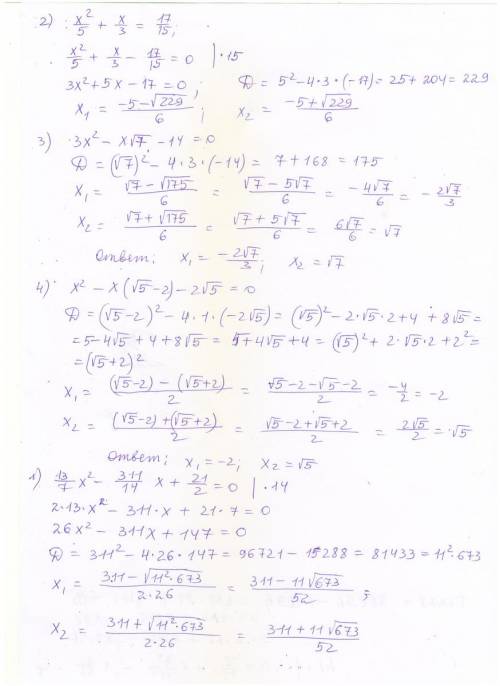 2) x²/5 + x/3 = 17/15;
x²/5 + x/3 − 17/15 = 0 |·15
3x² + 5x − 17 = 0; D = 5² − 4·3·(−17) = 25 + 204 = 229
x₁ = (−5 − √229)/6; x₂ = (−5 + √229)/6
3) 3x² − x√7 − 14 = 0
D = (√7)² − 4·3·(−14) = 7 + 168 = 175
x₁ = (√7 − √175)/6 = (√7 − 5√7)/6 = −4√7/6 = −2√7/3
x₂ = (√7 + √175)/6 = (√7 + 5√7)/6 = 6√7/6 = √7
Ответ: x₁ = −2√7/3; x₂ = √7
4) x² − x(√5 − 2) − 2√5 = 0
D = (√5 − 2)² − 4·1·(−2√5) = (√5)² − 2·√5·2 + 4 + 8√5 =
= 5 − 4√5 + 4 + 8√5 = 5 + 4√5 + 4 = (√5)² + 2·√5·2 + 2² =
= (√5 + 2)²
x₁ = ((√5 − 2) − (√5 + 2))/2 = (√5 − 2 − √5 − 2)/2 = −4/2 = −2
x₂ = ((√5 − 2) + (√5 + 2))/2 = (√5 − 2 + √5 + 2)/2 = 2√5/2 = √5
Ответ: x₁ = −2; x₂ = √5
1) 13/7 x² − 311/14 x + 21/2 = 0 |·14
2·13·x² − 311·x + 21·7 = 0
26x² − 311x + 147 = 0
D = 311² − 4·26·147 = 96721 − 15288 = 81433 = 11²·673
x₁ = (311 − √11²·673)/(2·26) = (311 − 11√673)/52;
x₂ = (311 + √11²·673)/(2·26) = (311 + 11√673)/52